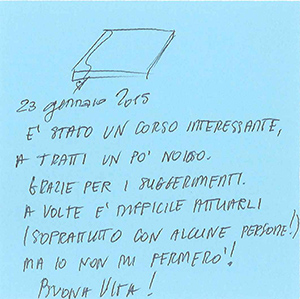 23 gennaio 2015
E' STATO UN CORSO INTERESSANTE,
A TRATTI UN PO' NOIOSO.
GRAZIE PER I SUGGERIMENTI.
A VOLTE E' DIFFICILE ATTUARLI
(SOPRATTUTTO CON ALCUNE PERSONE!)
MA IO NON MI FERMERO'!
BUONA VITA!